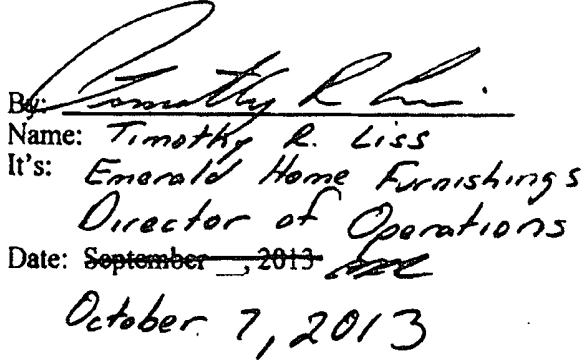 By: Timothy R Liss
Name: Timothy R. Liss
It's: Emerald Home Furnishings
Director of Operations
Date: September __, 2013
October 7, 2013